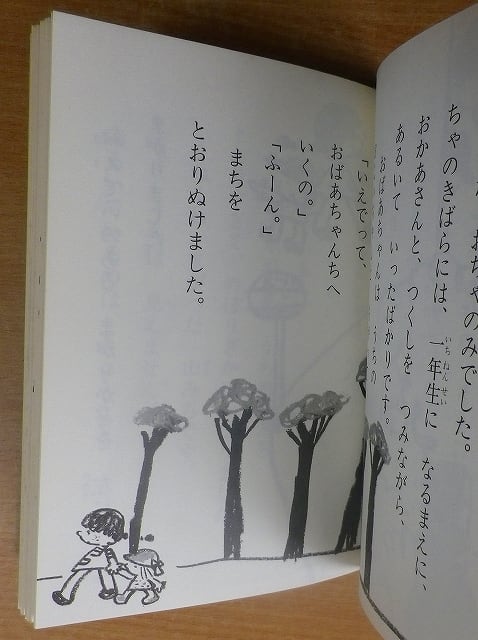 おちゃのみでした。
ちゃのきばらには、一年生に なるまえに、
いちねんせい
おかあさんと、つくしを つみながら、
あるいて いったばかりです。
おばあちゃんは、うちの
「いえでって、
おばあちゃんちへ
いくの。」
「ふーん。」
まちを
とおりぬけました。